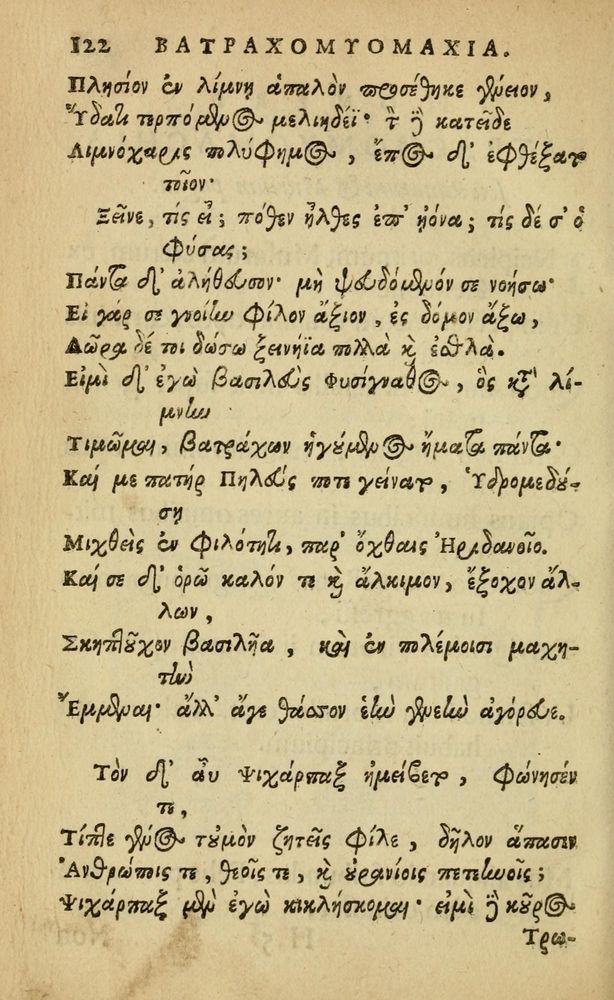 122 ΒΑΤΡΑΧΟΜΥΟΜΑΧΙΑ.
Πλησίον ἐν λίμνῃ ἁπαλὸν προσέθηκε γένειον,
Ὕδατι τερπόμενος μελιηδέϊ· τὸν δὲ κατεῖδε
Λιμνόχαρις πολύφημος, ἔπος δ' ἐφθέγξατο
τοῖον·
Ξεῖνε, τίς εἶ; πόθεν ἦλθες ἐπ' ἠόνα; τίς δέ σ' ὁ
φύσας;
Πάντα δ' ἀλήθευσον· μὴ ψευδόμενόν σε νοήσω·
Εἰ γάρ σε γνοίην φίλον ἄξιον, ἐς δόμον ἄξω,
Δῶρα δέ τοι δώσω ξεινήϊα πολλὰ καὶ ἐσθλά.
Εἰμὶ δ' ἐγὼ βασιλεὺς Φυσίγναθος, ὃς κατὰ λί-
μνην
Τιμῶμαι, βατράχων ἡγούμενος ἤματα πάντα·
Καί με πατὴρ Πηλεύς ποτε γείνατο, Ὑδρομεδού-
σῃ
Μιχθεὶς ἐν φιλότητι, παρ' ὄχθαις Ἠριδανοῖο.
Καί σε δ' ὁρῶ καλόν τε καὶ ἄλκιμον, ἔξοχον ἄλ-
λων,
Σκηπτοῦχον βασιλῆα, καὶ ἐν πολέμοισι μαχη-
τὴν
Ἔμμεναι· ἀλλ' ἄγε θᾶσσον ἑὴν γενεὴν ἀγόρευε.
Τὸν δ' αὖ Ψιχάρπαξ ἠμείβετο, φώνησέν
τε,
Τίπτε γένος τοὐμὸν ζητεῖς φίλε, δῆλον ἅπασιν
Ἀνθρώποις τε, θεοῖς τε, καὶ οὐρανίοις πετεηνοῖς;
Ψιχάρπαξ μὲν ἐγὼ κικλήσκομαι· εἰμὶ δὲ κοῦρος
Τρω-